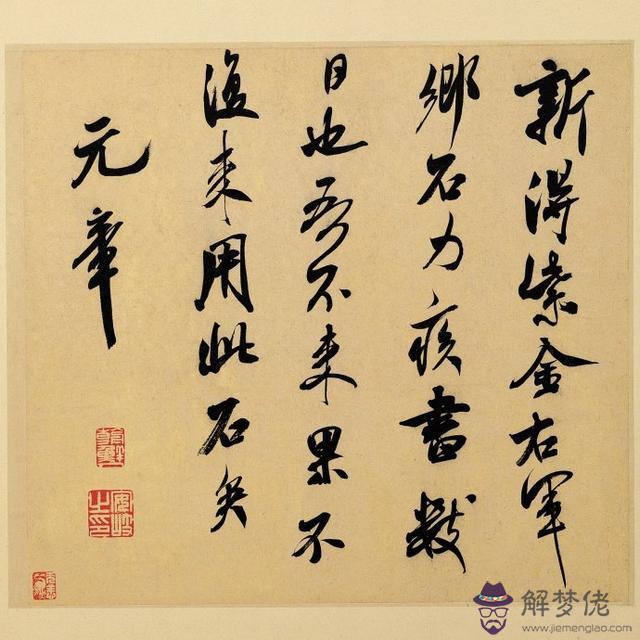 新得紫金右軍
鄉石力疾書數
日也吾不來果不
復來用此石矣
元章
解梦佬
www.jiemenglao.com